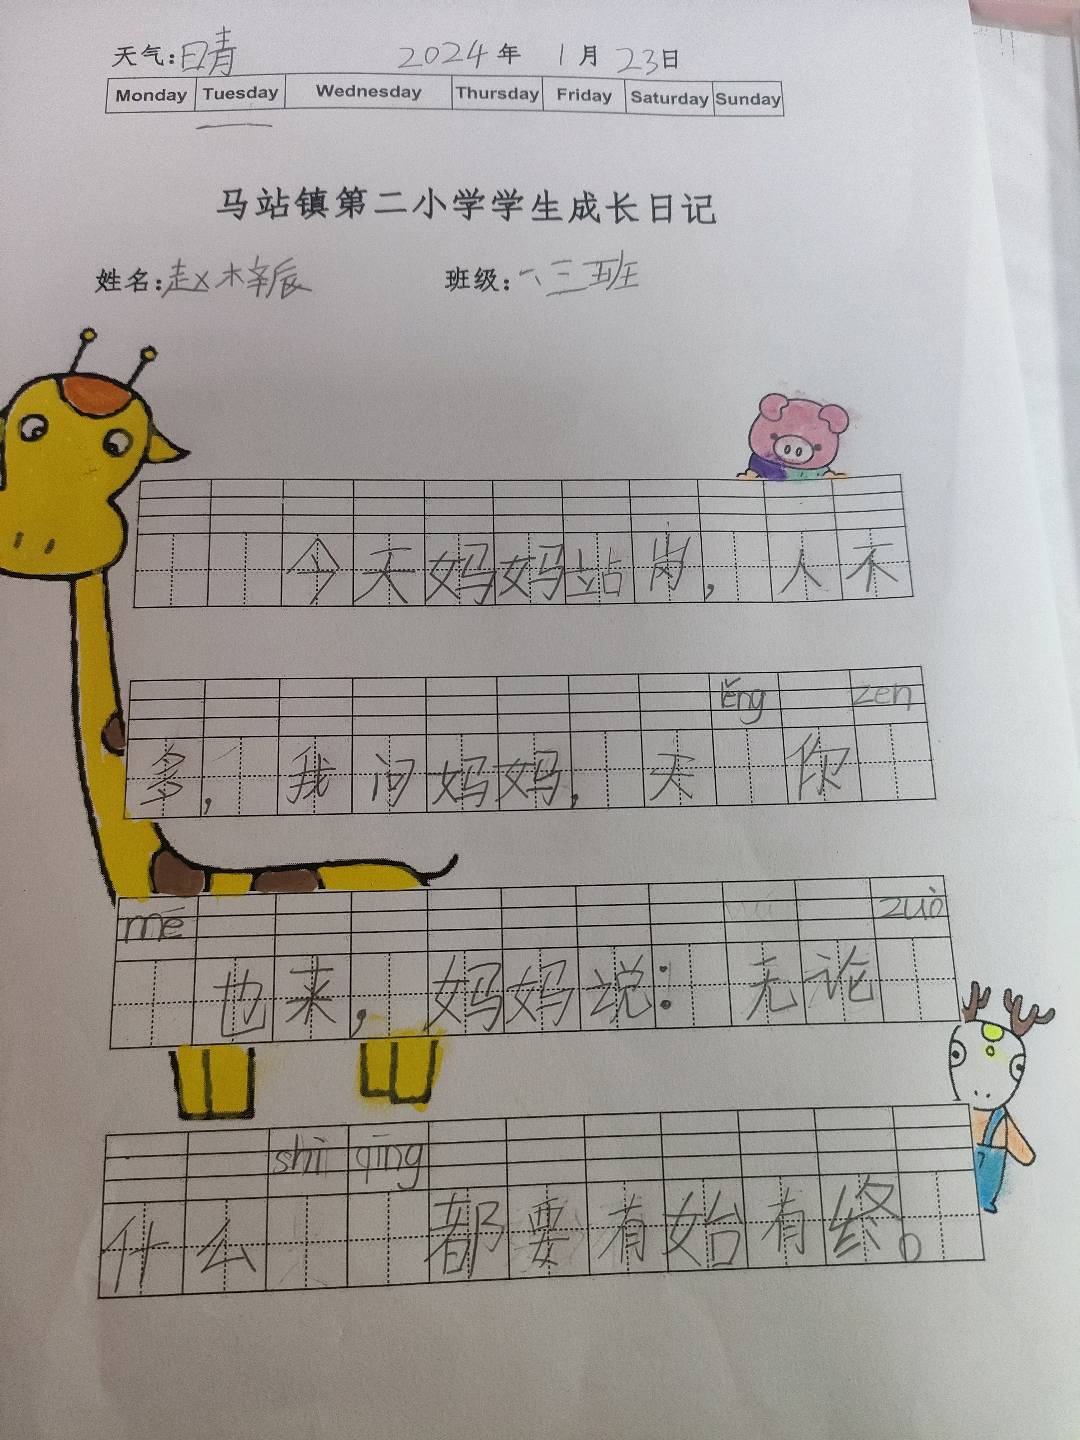 天气:晴 2024年 1月23日
Monday Tuesday Wednesday Thursday Friday Saturday Sunday
马站镇第二小学学生成长日记
姓名:赵梓辰 班级:一、三班
今天妈妈站岗,人不
ěng zen
多,我问妈妈,天 你
me zuò
也来,妈妈说:无论
shì qíng
什么 都要有始有终。